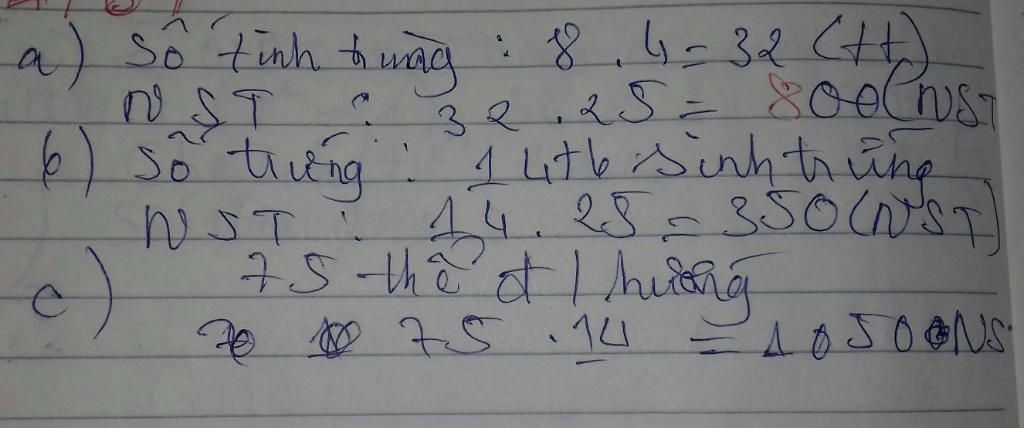 a) Số tinh trùng : 8 . 4 = 32 (tt)
NST : 32 . 25 = 800 (NST
b) Số trứng : 14 tb sinh trứng
NST : 14 . 25 = 350 (NST)
c) 75 thể đ hướng
75 . 14 = 1050 NS